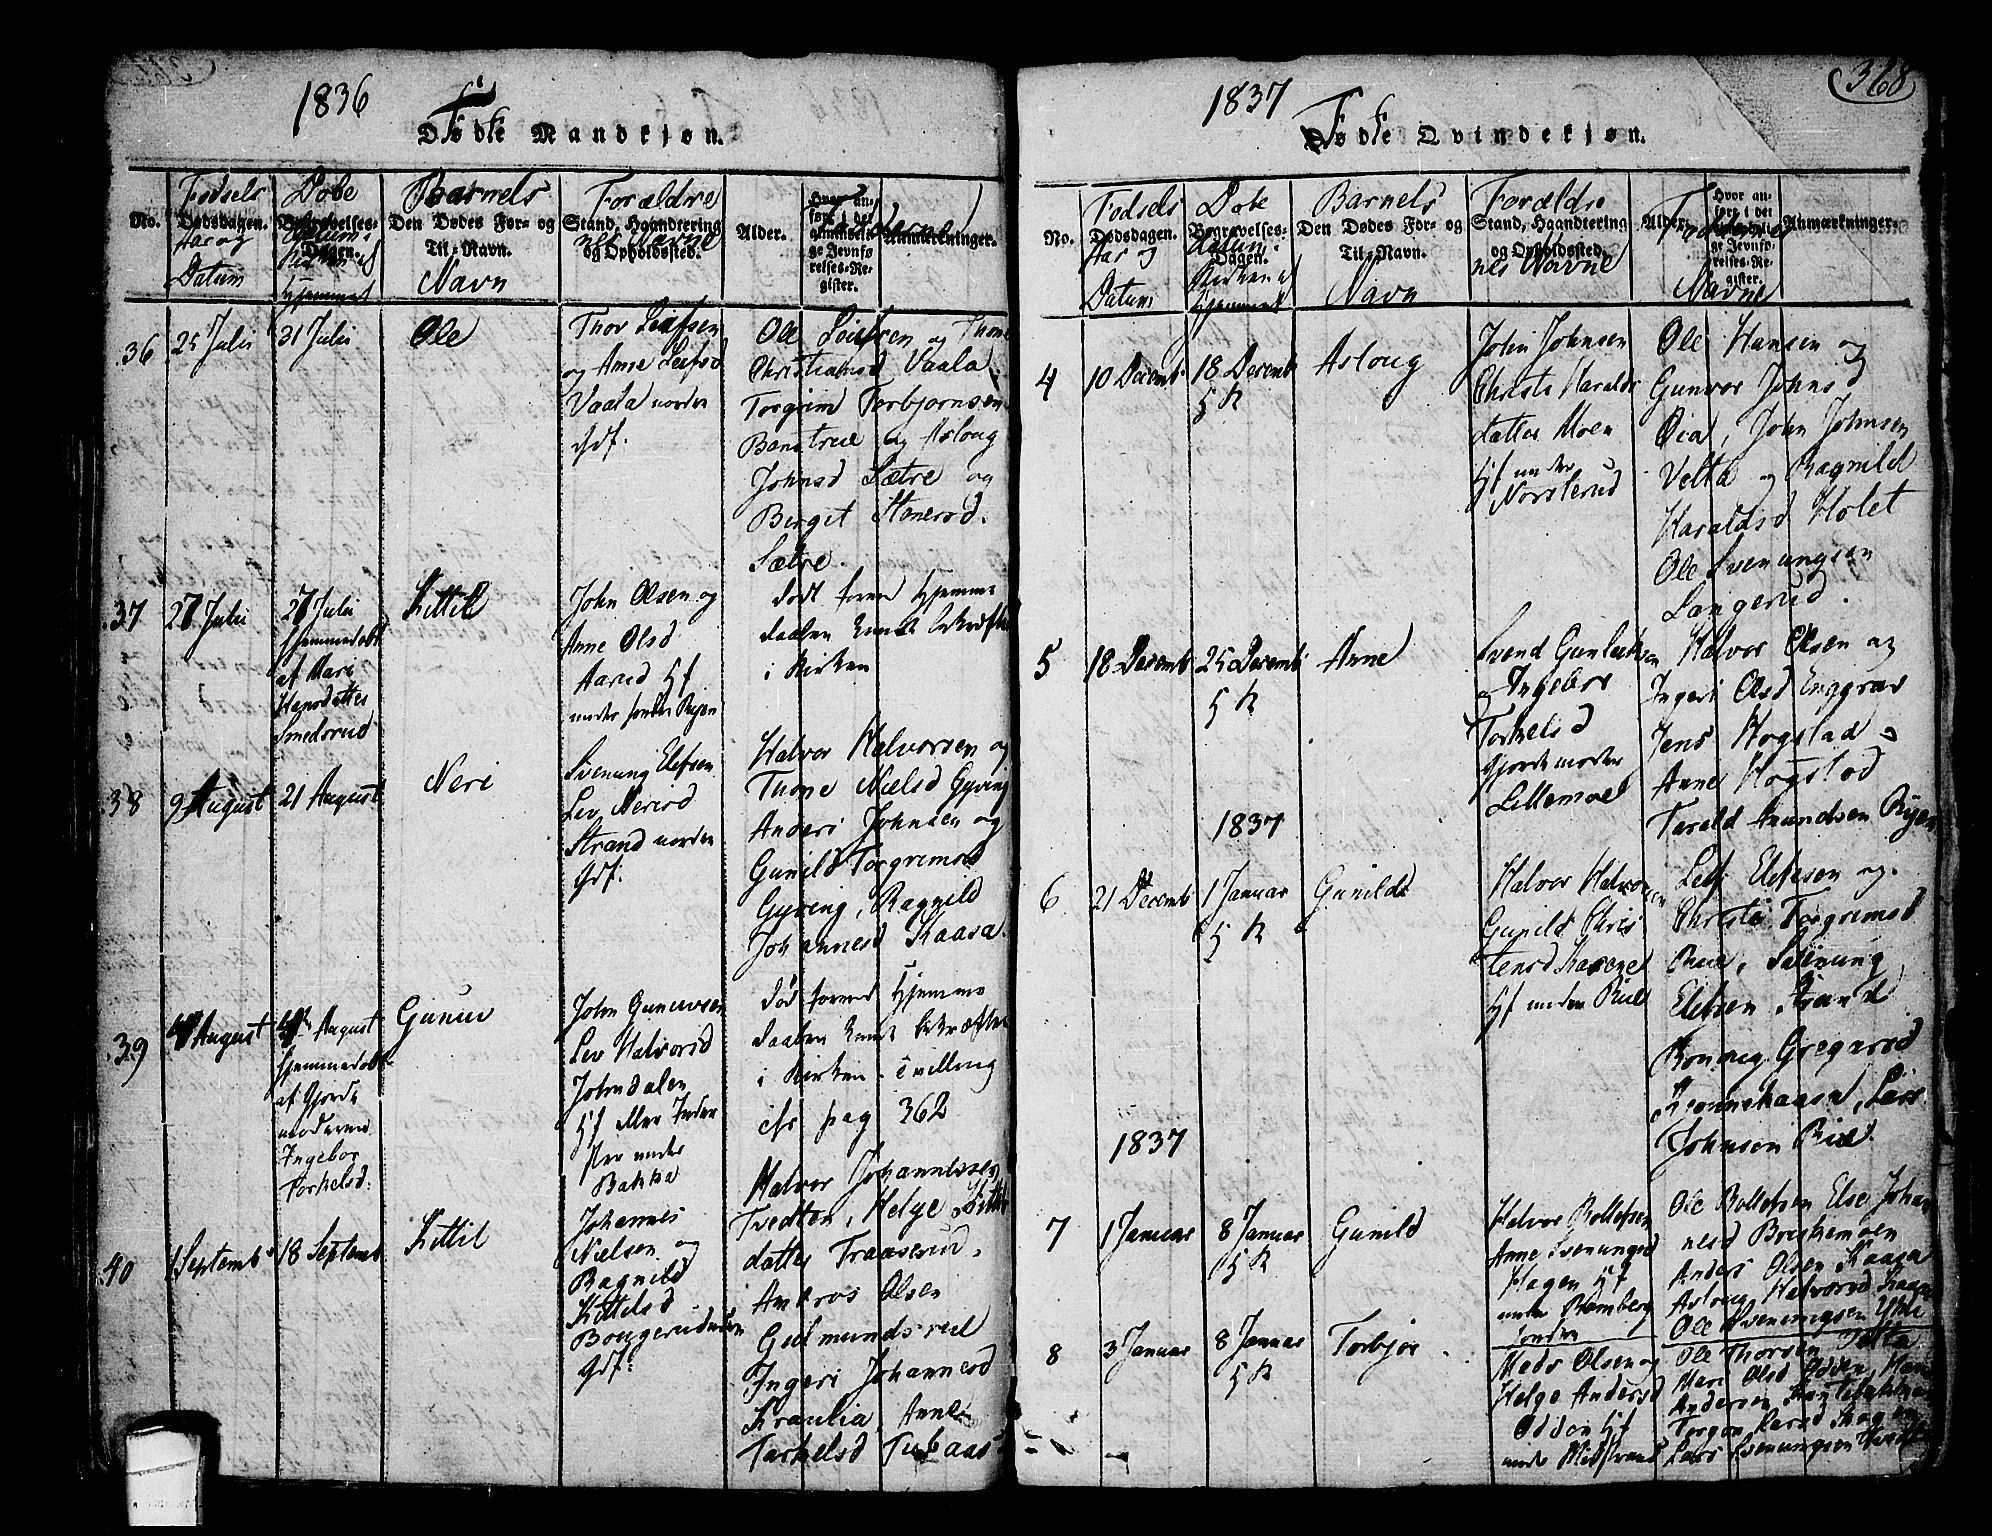 1836
Fødte Mandkjøn.
No.
Fødsels
Dødsdagen.
Aar og
Datum
Døbe
Begravelses-
Datum i
Dagen.
Kirken el
Hjemmet
Barnets
Den Dødes For- og
Til-Navn.
Navn
Forældre
Stand, Haandtering
nes Navne
og Opholdssted.
Alder.
Hvor an-
ført i det
almindeli-
ge Jevnfø
relses-Re-
gister.
Anmærkninger.
36
25 Juli
31 Juli
Ole
Thor Leifsen
og Anne Leifsd
Vaala norden
Gdf.
Ole Leifsen og Thone
Christiansd Vaala
Torgrim Torbjornsen
Bonstrue og Asloug
Johnsd Sætre og
Birget Stenersd.
Sætre.
37
27 Juli
27 Juli
Hjemmedøbt
af Mari
Hansdatter
Smedsrud
Kittil
John Olsen og
Anne Olsd
Aarud Hf
under sondre Ryen
dødt forend Hjemme
daaben kunde bekræftes
i Kirken
38
9 August
21 August
Neri
Svenung Elefsen
Liv Nerisd
Strand norden
Gdf.
Halvor Halvorsen og
Thone Nielsd Gyving
Anders Johnsen og
Gunild Torgrimsd
Gyving, Ragnild
Johannesd Kaasa
39
August
August
hjemmedøbt
af Gjorde
moderen
Ingebor
Torkelsd:
Gunuv
John Gunuvsen
Liv Halvorsd
Johndalen
Hf eller Inder
ster under
Bakka
død forend Hjemme
daaben kunde bekræftes
i Kirken. tvilling
cfr pag 362
40
1 Septemb
18 Septemb
Kittil
Johannes
Nielsen og
Ragnild
Kittelsd
Bougerud
Gdf:
Halvor Johannessen
Tvedten, Helge Kittils
datter Traaserud.
Ambros Olsen
Gudmundsrud
Ingeri Johannesd
Kraulia, Anne
Tarkelsd Tubaas
1837
368
Fødte Qvindekjøn.
No.
Fødsels
Dødsdagen.
Aar og
Datum
Døbe
Begravelses-
Datum i
Dagen.
Kirken el
Hjemmet
Barnets
Den Dødes For- og
Til-Navn.
Navn
Forældre
Stand, Haandtering
og Opholdssted.
nes Navne
Alder.
Fadernes
Hvor an-
ført i det
almindeli-
ge Jevnfø-
relses-Re-
gister.
Navne
Anmærkninger.
4
10 Decemb
18 Decemb
5 K
Asloug
John Johnsen
Christi Haralds
datter Moen
Hf under
Norsterud
Ole Hansen og
Gunvor Johnsd
Øia, John Johnsen
Velta og Ragnild
Haraldsd Holet
Ole Svenungsen
Langerud.
5
18 Decemb
25 Decemb
5 K
Anne
Svend Gunleiksen
og Ingebor
Torkelsd
Gjordemoder
Lillemoel
Halvor Olsen og
Ingeri Olsd Enggrav
Jens Hogstad
Anne Hogstad
Tarald Amundsen Ryen
1837
6
21 Decemb
1 Januar
5 K
Gunild
Halvor Halvorsen
Gunild Chris
tensd Kasene
Hf under Rue
Leif Elefsen og
Christi Torgrimsd
Rue, Svenung
Elefsen Strand
Ronnaug Gregarsd
Kronnekaasa, Lars
Johnsen Rue.
1837
7
1 Januar
8 Januar
5 K
Gunild
Halvor Bollefsen
Anne Svenungsd
Hagen Hf
under Romberg
sondre
Ole Bollefsen Else Johan
nesd Briskemoen
Anders Olsen Kaasa
Aslong Halvorsd Kaasa
Ole Svenungsen Ytli
8
3 Januar
8 Januar
5 K
Torbjor
Mads Olsen og
Helge Andersd
Odden Hf
under Midstrand
Ole Thorsen Velta
Mari Olsd Odden, Hans
Andersen
Torgon Larsd
Lars Svenungsen